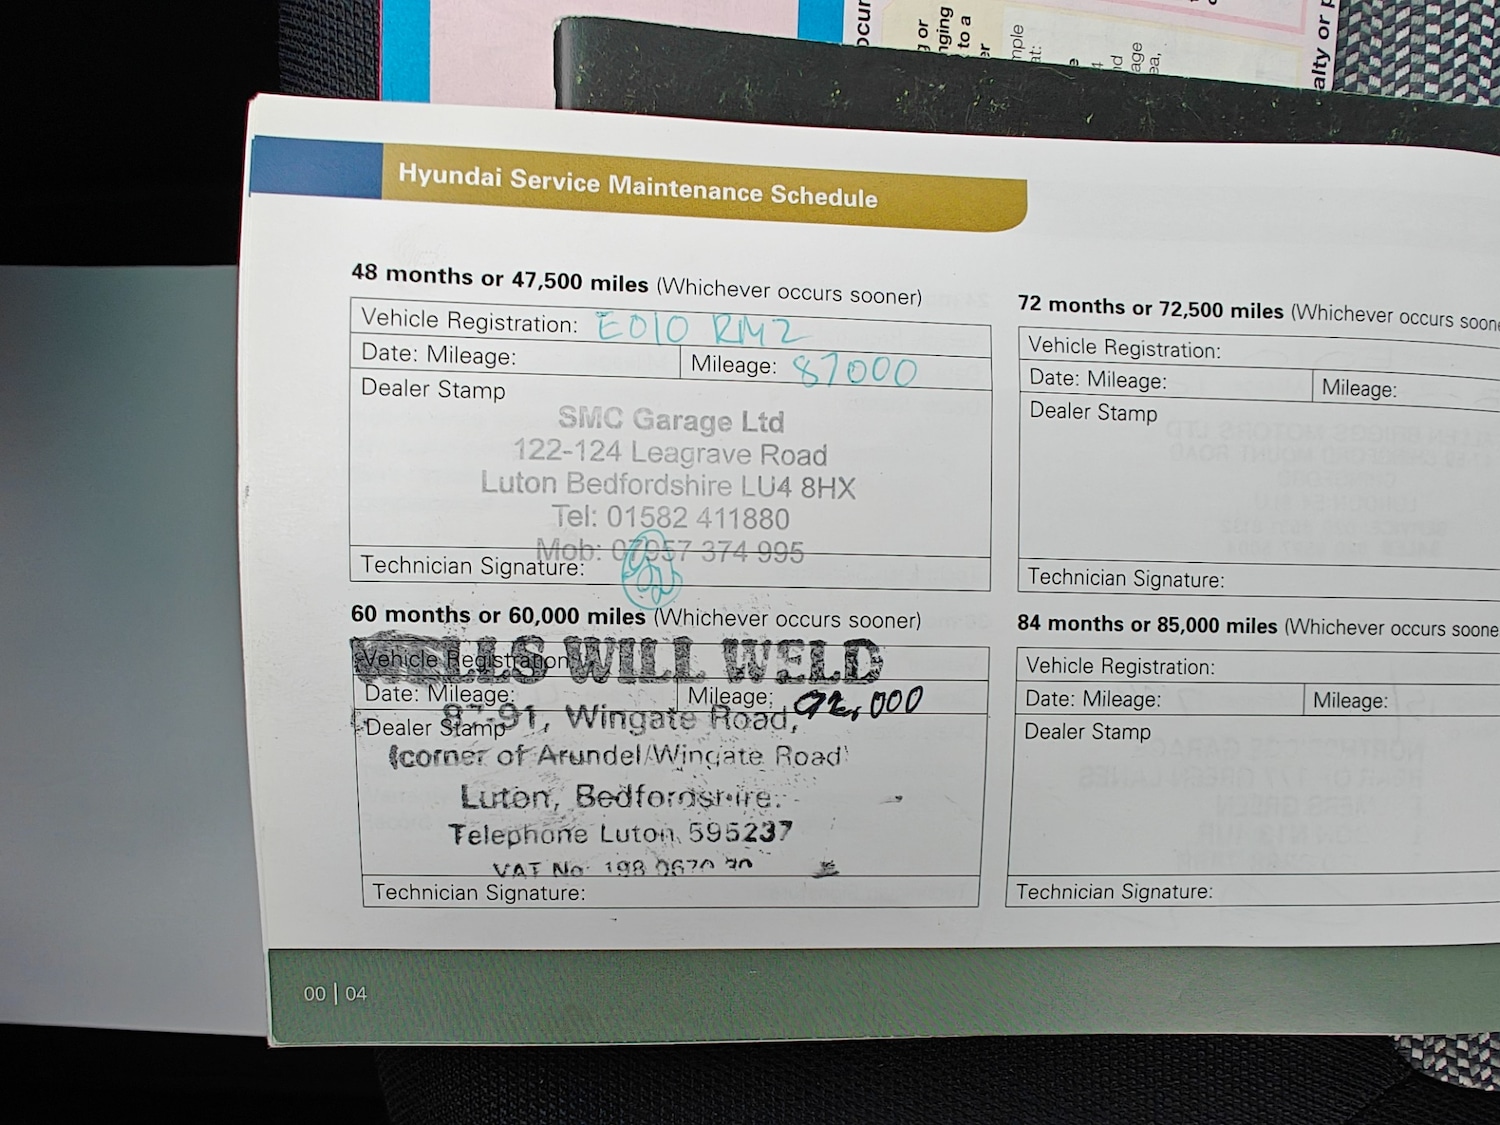 ocur
g or
nging
to a
er
mple
at:
e
4
nd
age
ea,
alty or p
Hyundai Service Maintenance Schedule
48 months or 47,500 miles (Whichever occurs sooner)
Vehicle Registration: EO10 RMZ
Date: Mileage:
Mileage: 87000
Dealer Stamp
SMC Garage Ltd
122-124 Leagrave Road
Luton Bedfordshire LU4 8HX
Tel: 01582 411880
Mob: 07957 374 995
Technician Signature:
60 months or 60,000 miles (Whichever occurs sooner)
WELLS WILL WELD
Vehicle Registration:
Date: Mileage:
Mileage: 92,000
Dealer Stamp
87-91, Wingate Road,
(corner of Arundel/Wingate Road)
Luton, Bedfordshire.
Telephone Luton 595237
VAT No. 198 0670
Technician Signature:
72 months or 72,500 miles (Whichever occurs soone
Vehicle Registration:
Date: Mileage:
Mileage:
Dealer Stamp
Technician Signature:
84 months or 85,000 miles (Whichever occurs soone
Vehicle Registration:
Date: Mileage:
Mileage:
Dealer Stamp
Technician Signature:
00 | 04